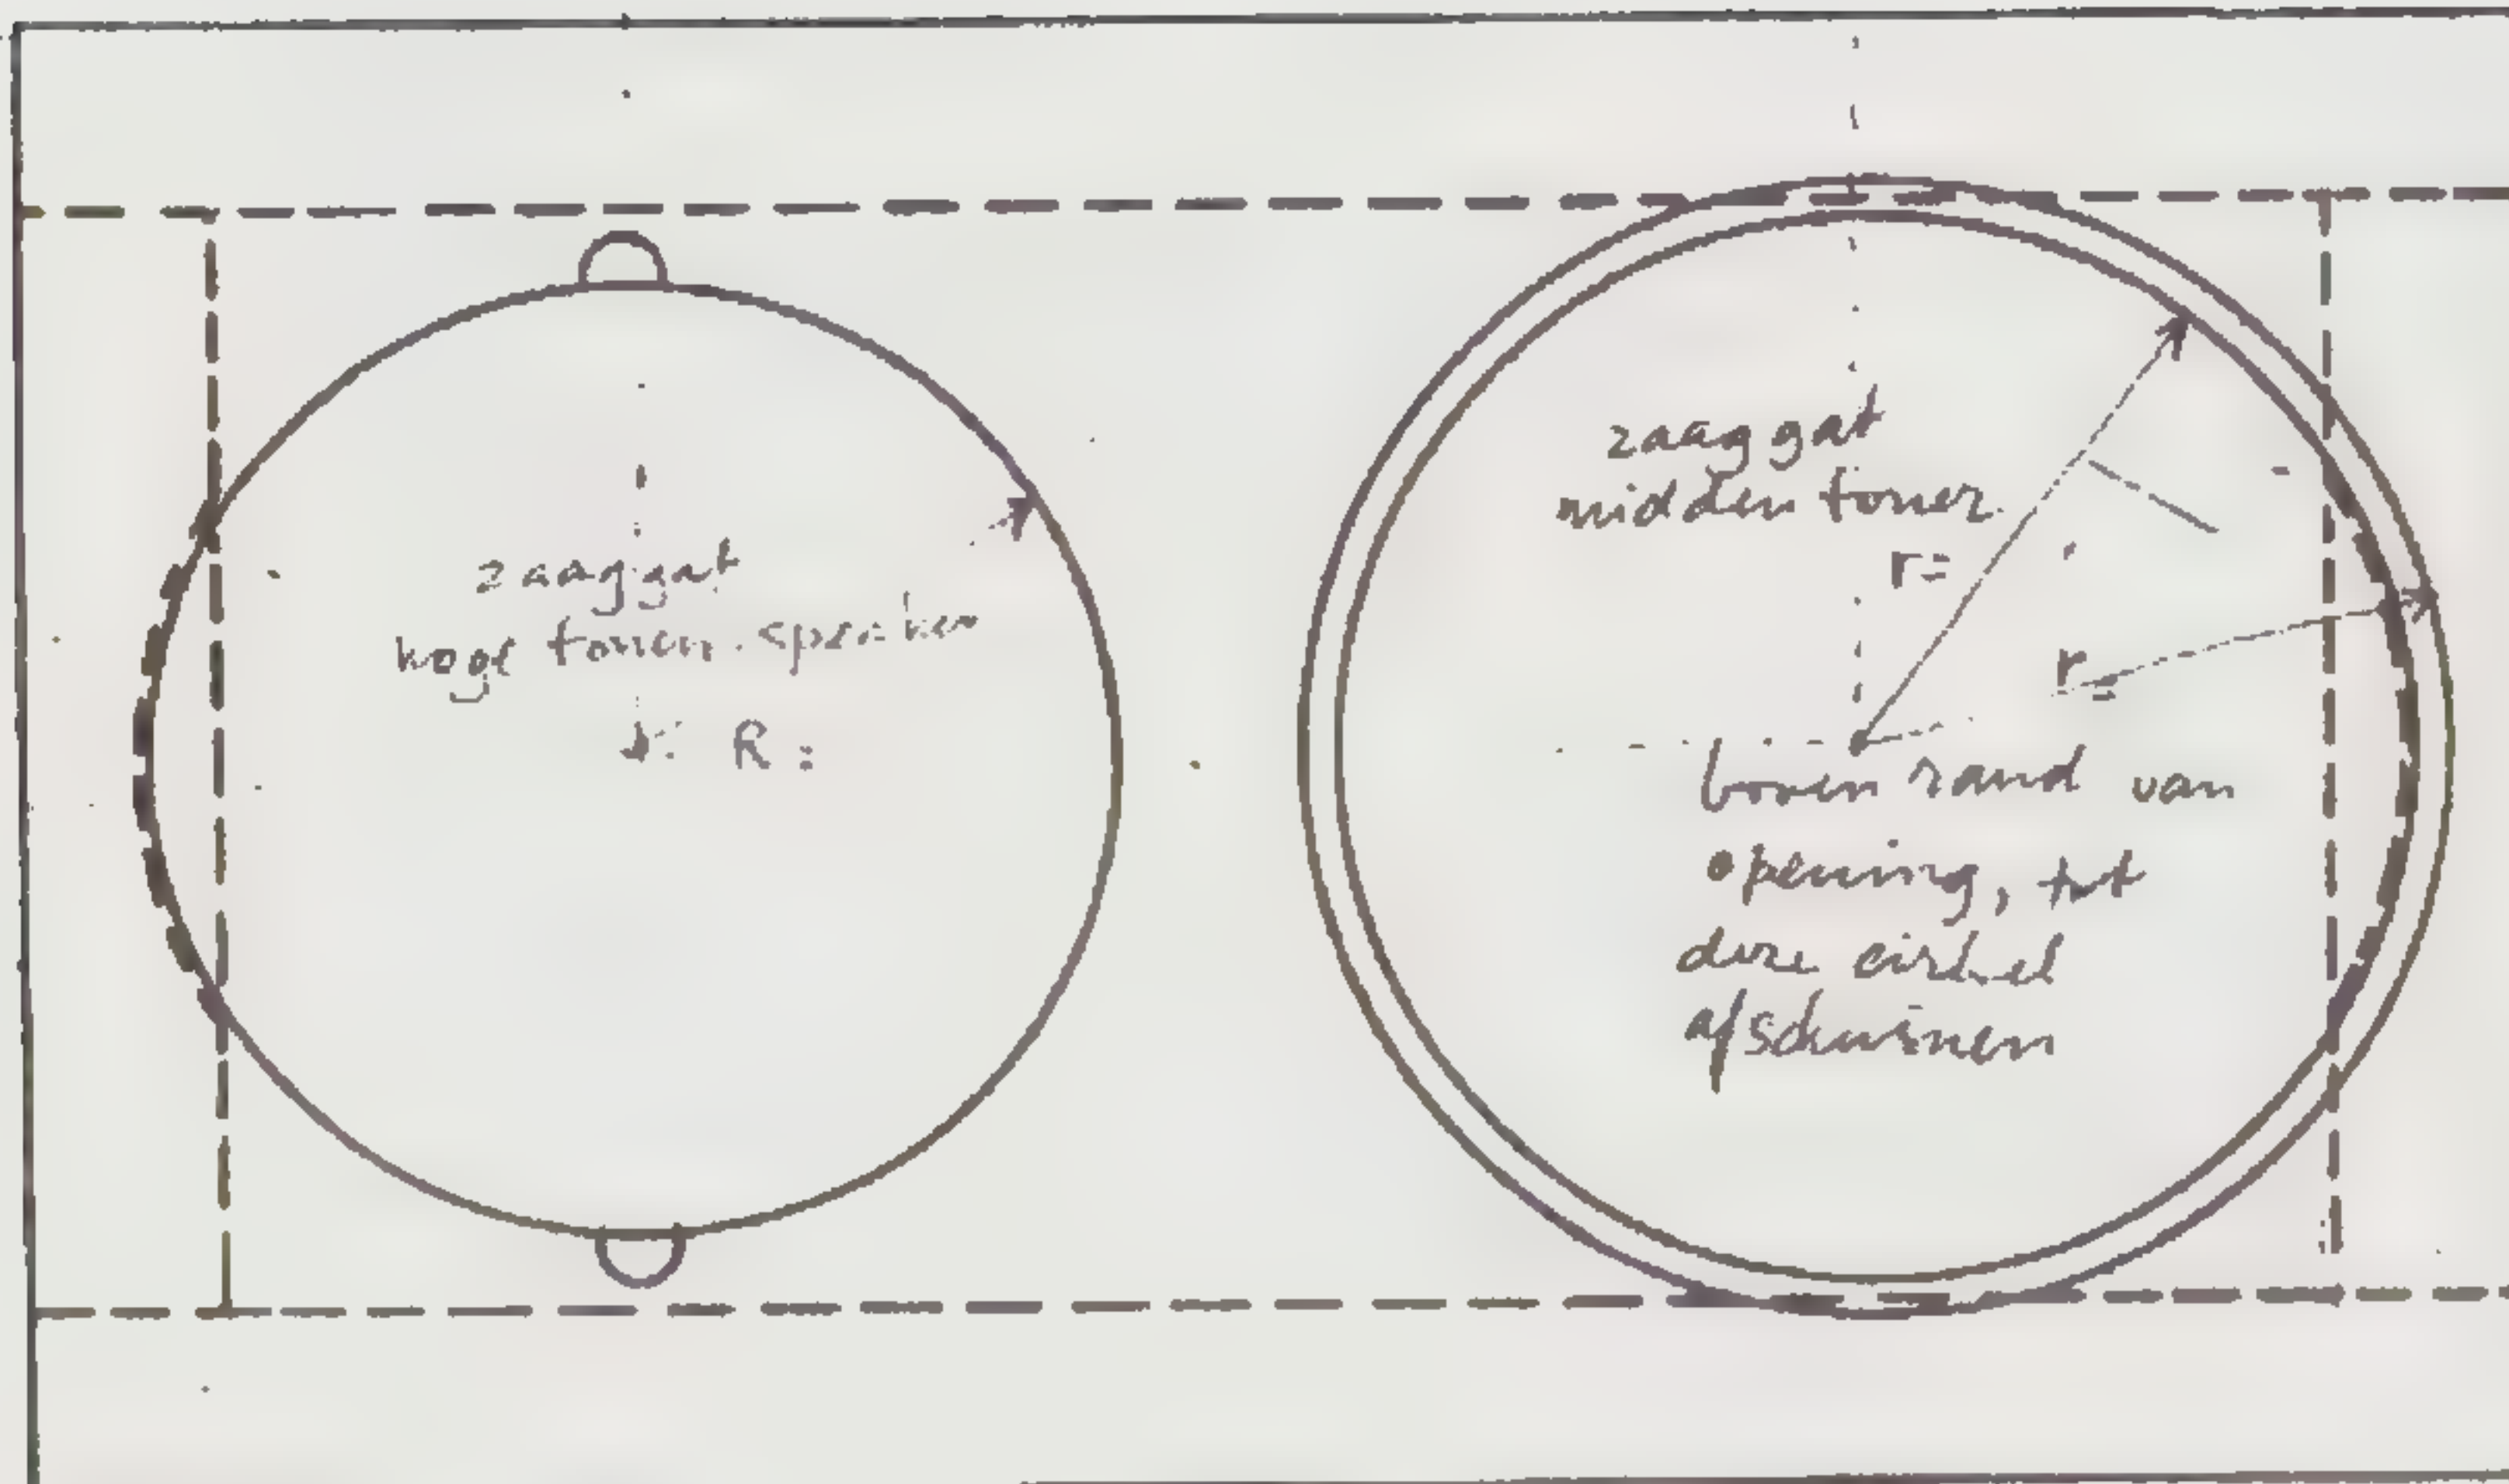 zaaggat
hoge tonen speaker
R :
zaaggat
midden toner
r=
r=
boven rand van
opening, tot
deze cirkel
afschuinen